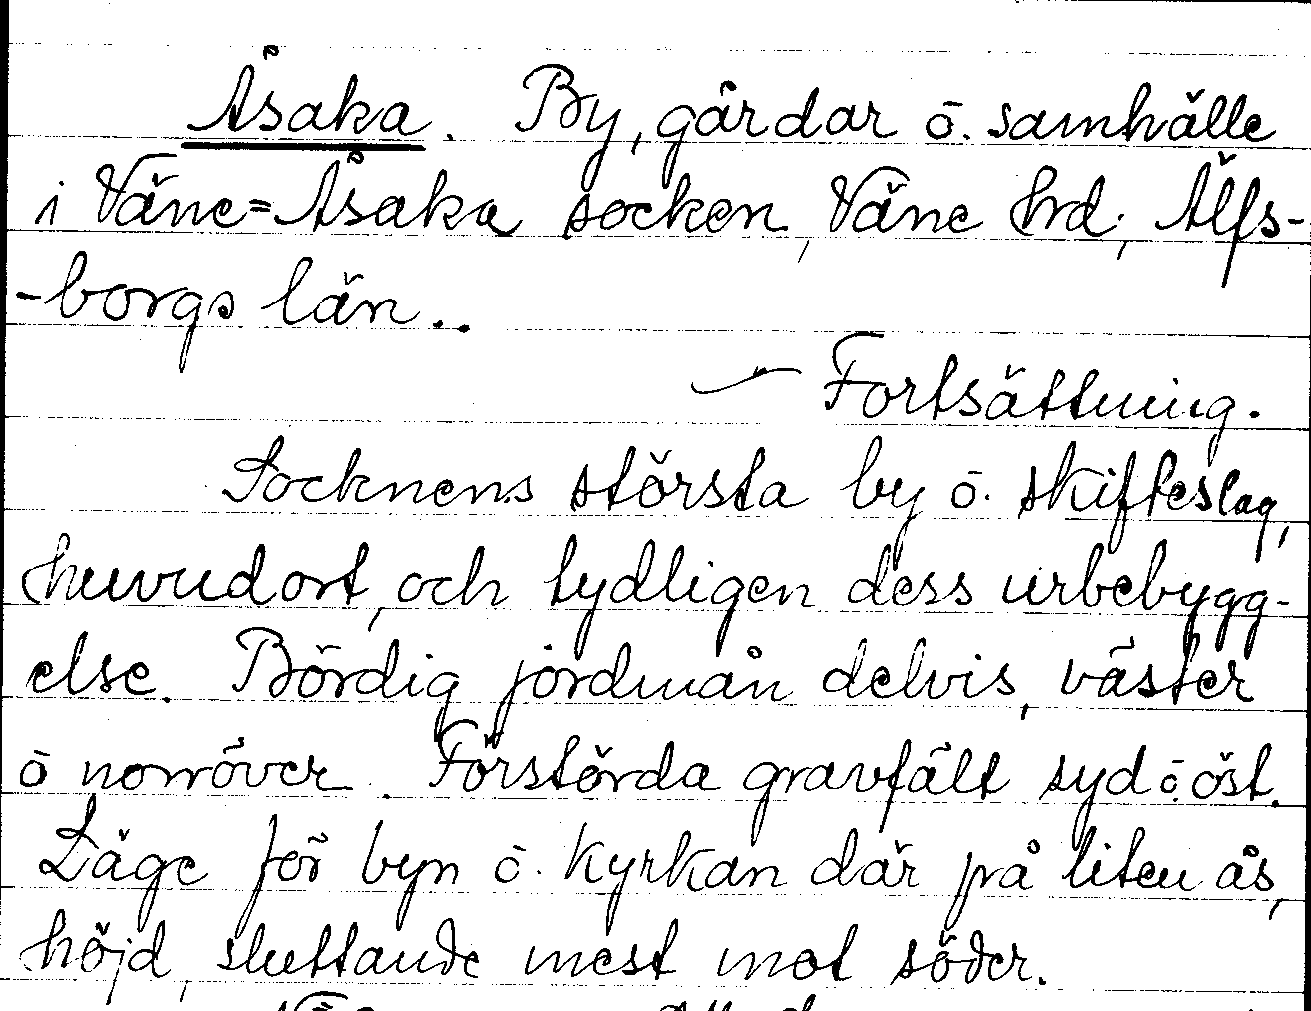 Åsaka. By, gårdar ō. samhälle
i Väne=Åsaka socken, Väne hrd; Älfs-
-borgs län..
Fortsättning.
Socknens största by ō. skifteslag,
huvudort, och tydligen dess urbebygg-
else. Bördig jordmån delvis, väster
ō norröver. Förstörda gravfält syd ō. öst.
Läge för byn ō. kyrkan där på liten ås,
höjd, sluttande mest mot söder.